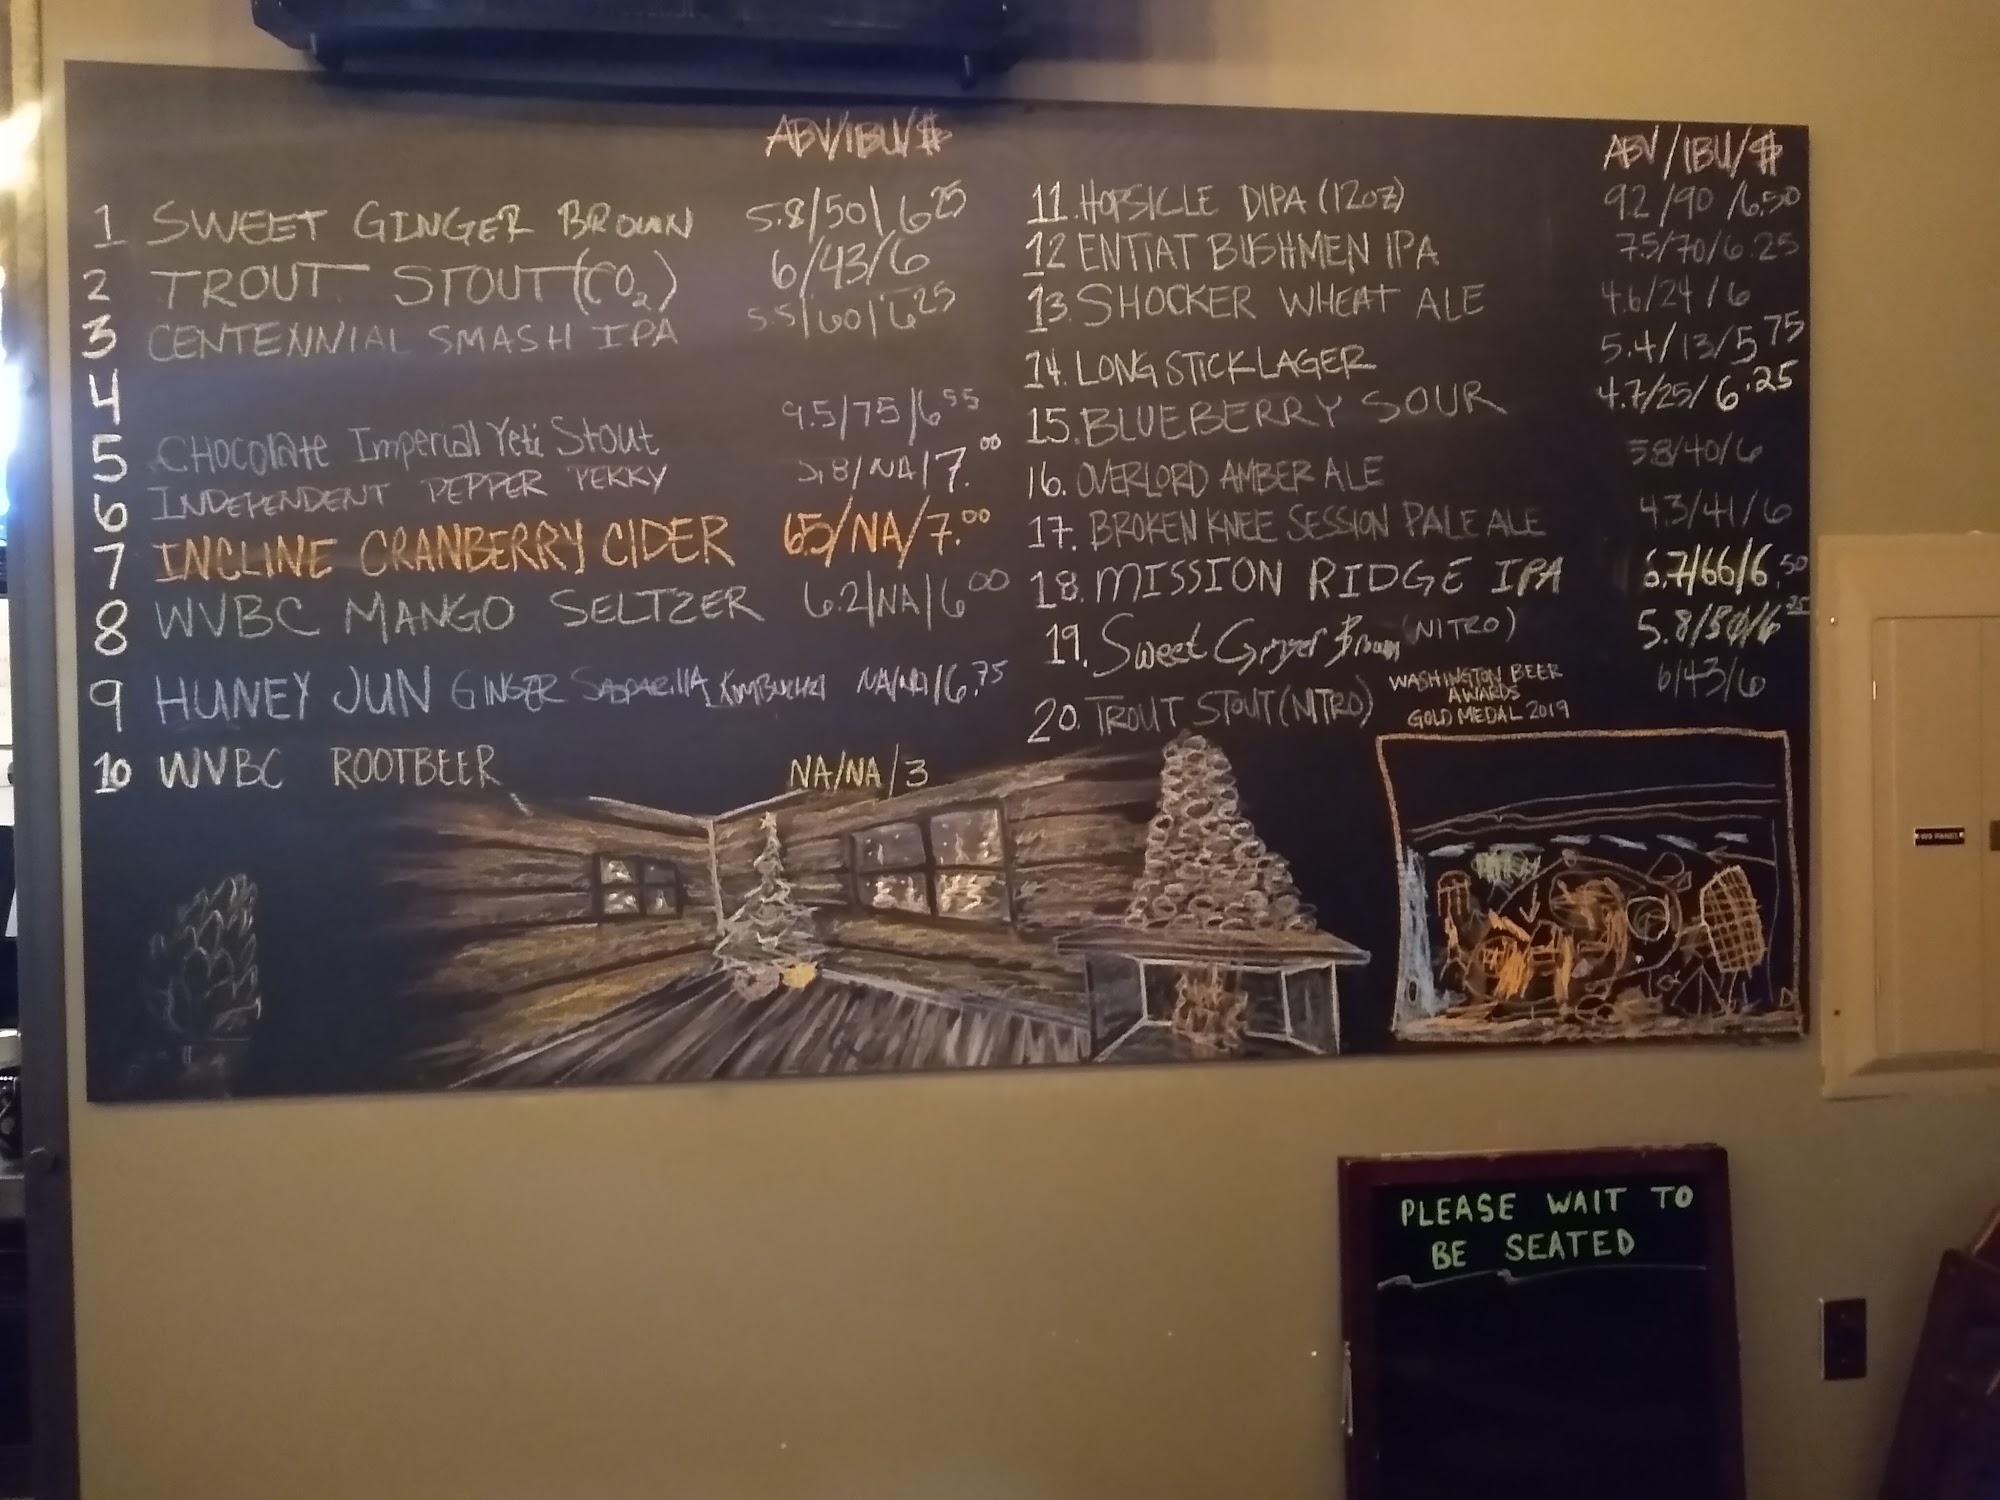 ABV/IBU/$
1 SWEET GINGER BROWN 5.8/50/6.25
2 TROUT STOUT (CO2) 6/43/6
3 CENTENNIAL SMASH IPA 5.5/60/6.25
4
5 CHOCOLATE Imperial Yeti Stout 9.5/75/6.55
6 INDEPENDENT PEPPER YEKKY 5.8/NA/7.00
7 INCLINE CRANBERRY CIDER 6.5/NA/7.00
8 WVBC MANGO SELTZER 6.2/NA/6.00
9 HUNEY JUN GINGER SASPARILLA KOMBUCHA NA/NA/6.75
10 WVBC ROOTBEER NA/NA/3
ABV/IBU/$
11. HOPSICLE DIPA (12oz) 9.2/90/6.50
12 ENTIAT BUSHMEN IPA 7.5/70/6.25
13. SHOCKER WHEAT ALE 4.6/24/6
14. LONG STICK LAGER 5.4/13/5.75
15. BLUEBERRY SOUR 4.7/25/6.25
16. OVERLORD AMBER ALE 5.8/40/6
17. BROKEN KNEE SESSION PALE ALE 4.3/41/6
18. MISSION RIDGE IPA 6.7/66/6.50
19. Sweet Ginger Brown (NITRO) 5.8/50/6.25
20. TROUT STOUT (NITRO) 6/43/6
WASHINGTON BEER
AWARDS
GOLD MEDAL 2019
PLEASE WAIT TO
BE SEATED